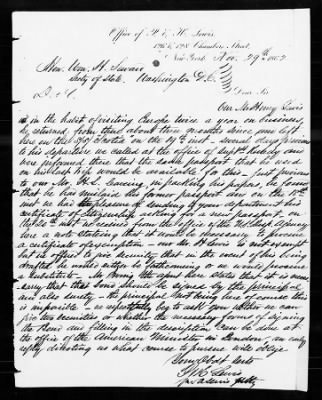 Office of P. & H. Lewis
126 & 128 Chambers Street,
New York Nov. 29th 1862
Hon. Wm. H. Seward
Secty of State, Washington D.C.
Dear Sir
Our Mr Henry Lewis
is in the habit of visiting Europe twice a year on business,
he returned from there about three months since and left
here on the S/S Scotia on the 19th inst - several days previous
to his departure we called at the office of Dept. today and
were informed there that the same passport that he used
on his last trip would be available for this - just previous
to our Mr H. L. leaving, in packing his papers, he found
that he had his former passport and on the 18th
inst we had the pleasure of sending to your department his
certificate of citizenship asking for a new passport, on
the 26th inst we received from the office of the Dispatch Agency
here a note stating that it would be necessary to procure
a certificate of exemption - our Mr H Lewis is not exempt
but is willing to give security that in the event of his being
drafted he would either be forthcoming or would procure
a substitute - Mr the agent here states that it is neces-
sary that said bond should be signed by the principal
and also surety - the principal not being here of course this
is impossible & we respectfully beg to ask you whether we can
give two securities or whether the necessary forms of signing
the bond and filling in the description can be done at
the office of the American Minister in London - an early
reply directing us what course to pursue will oblige
Your Obdt Servts
P & H Lewis